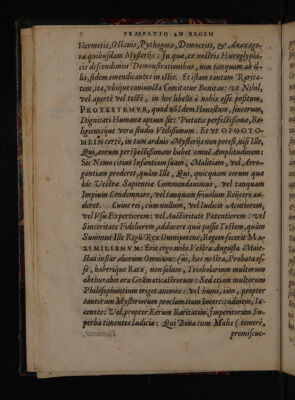 PRAEFATIO AD REGEM
Hermetis, Ostanis, Pythagoræ, Democriti, & Anaxago-
ræ quibusdam Mysterijs: In quæ, ex nostris Hieroglyphi-
cis descendimus Demonstrationibus, non tanquam ab il-
lis, fidem emendicantes in istis. Et istam tantam Raritа-
tem, ita, vbique coniuncta Comitatur Bonitas: vt Nihil,
vel apertè vel tectè, in hoc libello à nobis esse positum,
PROTESTEMVR, quod nō Idem Honestum, sincerum,
Dignitati Humanæ aptum sit: Pietatis perfectissimæ, Re-
ligionisque veræ studio Vtilissimum. Et vt
certè, in tam arduis Mysterijs non potest, nisi ille,
Qui, eorum perspectissimam habet omnē Amplitudinem:
Sic Nemo citius Infantiam suam, Malitiam, vel Arro-
gantiam proderet, quàm Ille, Qui, quicquam eorum quæ
hîc Vestræ Sapientiæ Commendamus, vel tanquam
Impium Condemnare, vel tanquam friuolum Reijcere au-
deret. Cuius rei, cùm nullum, vel Iudicio Acutiorem,
vel Vsu Expertiorem: vel Auctoritate Potentiorem: vel
Sinceritate Fideliorem, adducere quis possit Testem, quàm
Summus Ille Regũ Rex Omnipotens, Regem fecerit MA-
XIMILIANVM: Erit ergo mihi Vestra Augusta Maie-
stas instar aliorum Omnium: Cui, hæc nostra, Probata es-
se, haberique Rata, non solum, Triobolarium multorum
obthurabit ora Grammaticastrorum: Sed etiam multorum
Philosophantium eriget animos: vel humi, iam, propter
tantorum Mysteriorum proclamatam Incertitudinem, Ia-
centes: Vel, propter Rerum Raritatem, Imperitorum Su-
perba timentes Iudicia: Qui Bona cum Malis (temerè,
promiscuè-